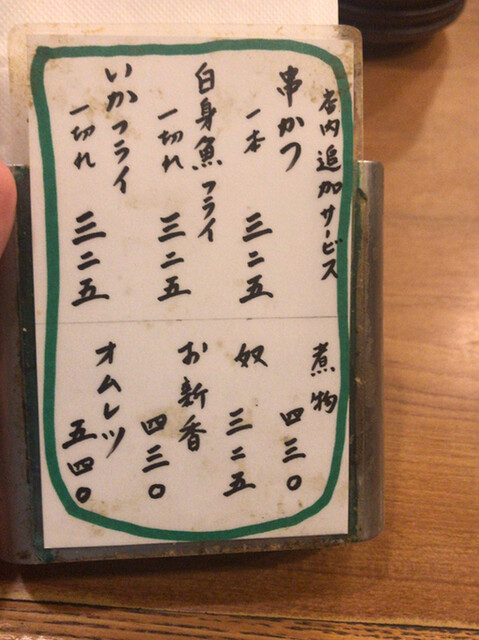 店内追加サービス
串かつ
一本
三二五
白身魚フライ
一切れ
三二五
いかフライ
一切れ
三二五
煮物
四三〇
奴
三二五
お新香
四三〇
オムレツ
五四〇